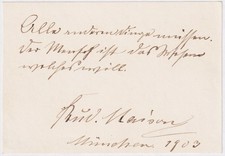 Alle anderen Dinge müssen.
Der Mensch ist das Wesen
welches will.
Rud. Maison
München 1903